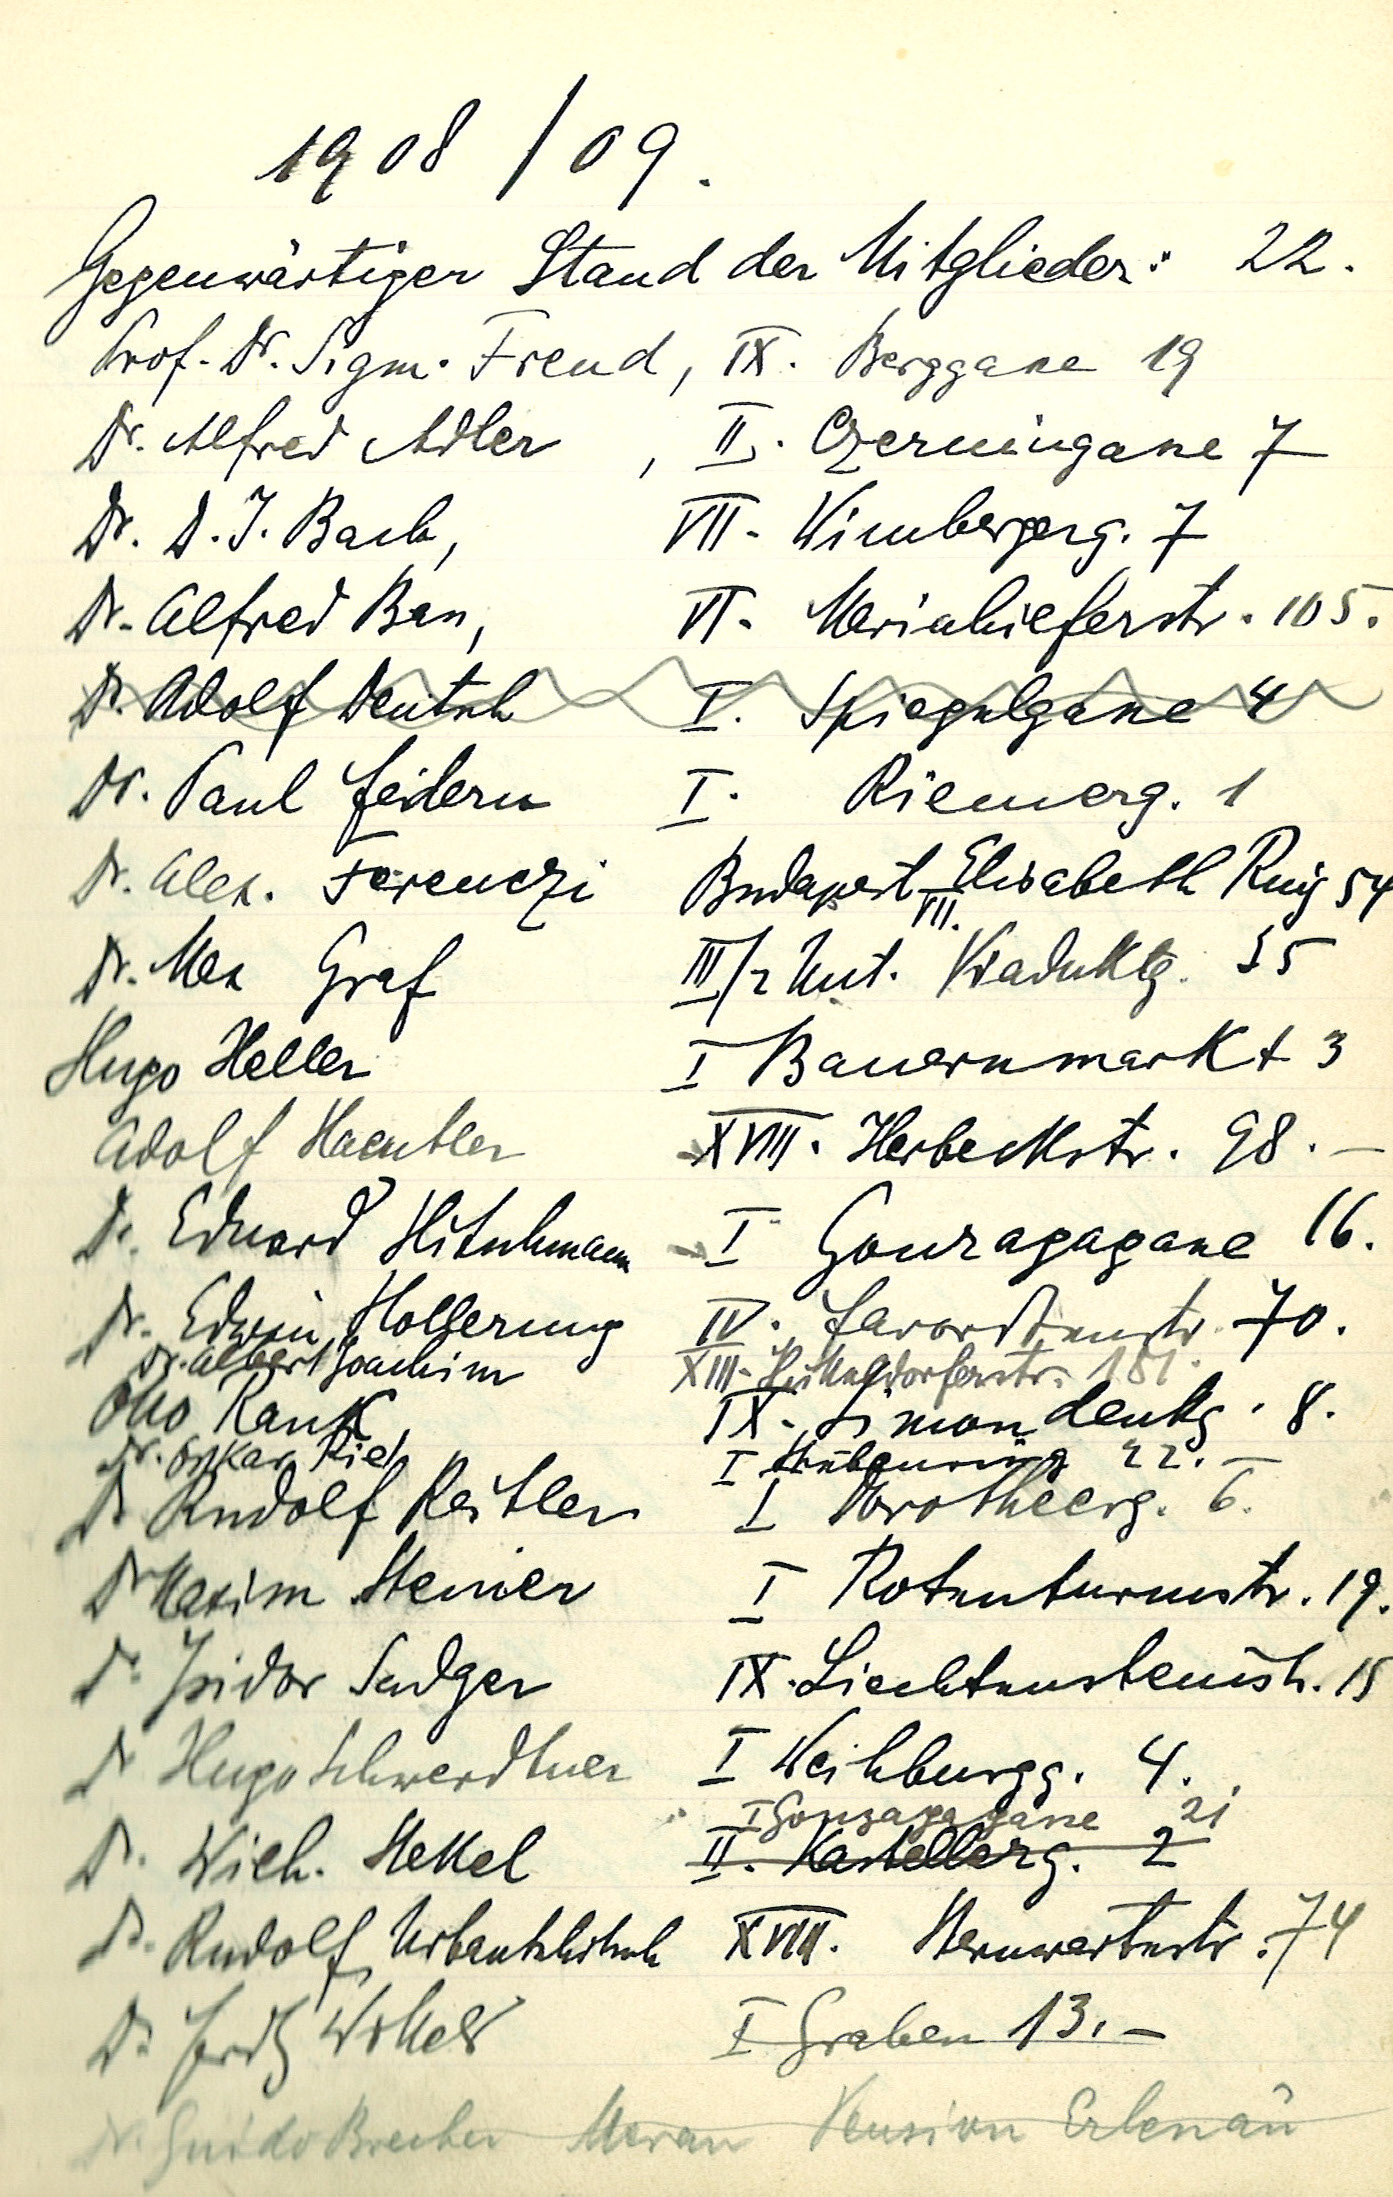 1908/09.
Gegenwärtiger Stand der Mitglieder: 22.
Prof. Dr. Sigm. Freud, IX. Berggasse 19
Dr. Alfred Adler, II. Czerningasse 7
Dr. D. J. Bach, VII. Wimbergerg. 7
Dr. Alfred Bass, VI. Mariahilferstr. 105.
Dr. Adolf Deutsch I. Spiegelgasse 4
Dr. Paul Federn I. Riemerg. 1
Dr. Alex. Ferenczi Budapest VII. Elisabeth Ring 54
Dr. Max Graf III/2 Unt. Viaduktg. 35
Hugo Heller I Bauernmarkt 3
Adolf Haeutler XVIII. Herbeckstr. 98.–
Dr. Eduard Hitschmann I Gonzagagasse 16.
Dr. Edwin Hollerung IV. Favoritenstr. 70.
Dr. Albert Joachim XIII. Hütteldorferstr. 181.
Otto Rank, IX. Simondenkg. 8.
Dr. Oskar Rie I Stubenring 22.–
Dr Rudolf Reitler I Dorotheerg. 6.
Dr Maxim Steiner I Rotenturmstr. 19.
Dr. Isidor Sadger IX. Liechtensteinstr. 15
Dr Hugo Schwerdtner I Weihburgg. 4.
I Gonzagagasse 21
Dr. Wilh. Stekel II. Kastellezg. 2
Dr. Rudolf Urbantschitsch XVIII. Sternwartestr. 74
Dr. Fritz Wittels I Graben 13.–
Dr. Guido Brecher Meran Pension Erlenau